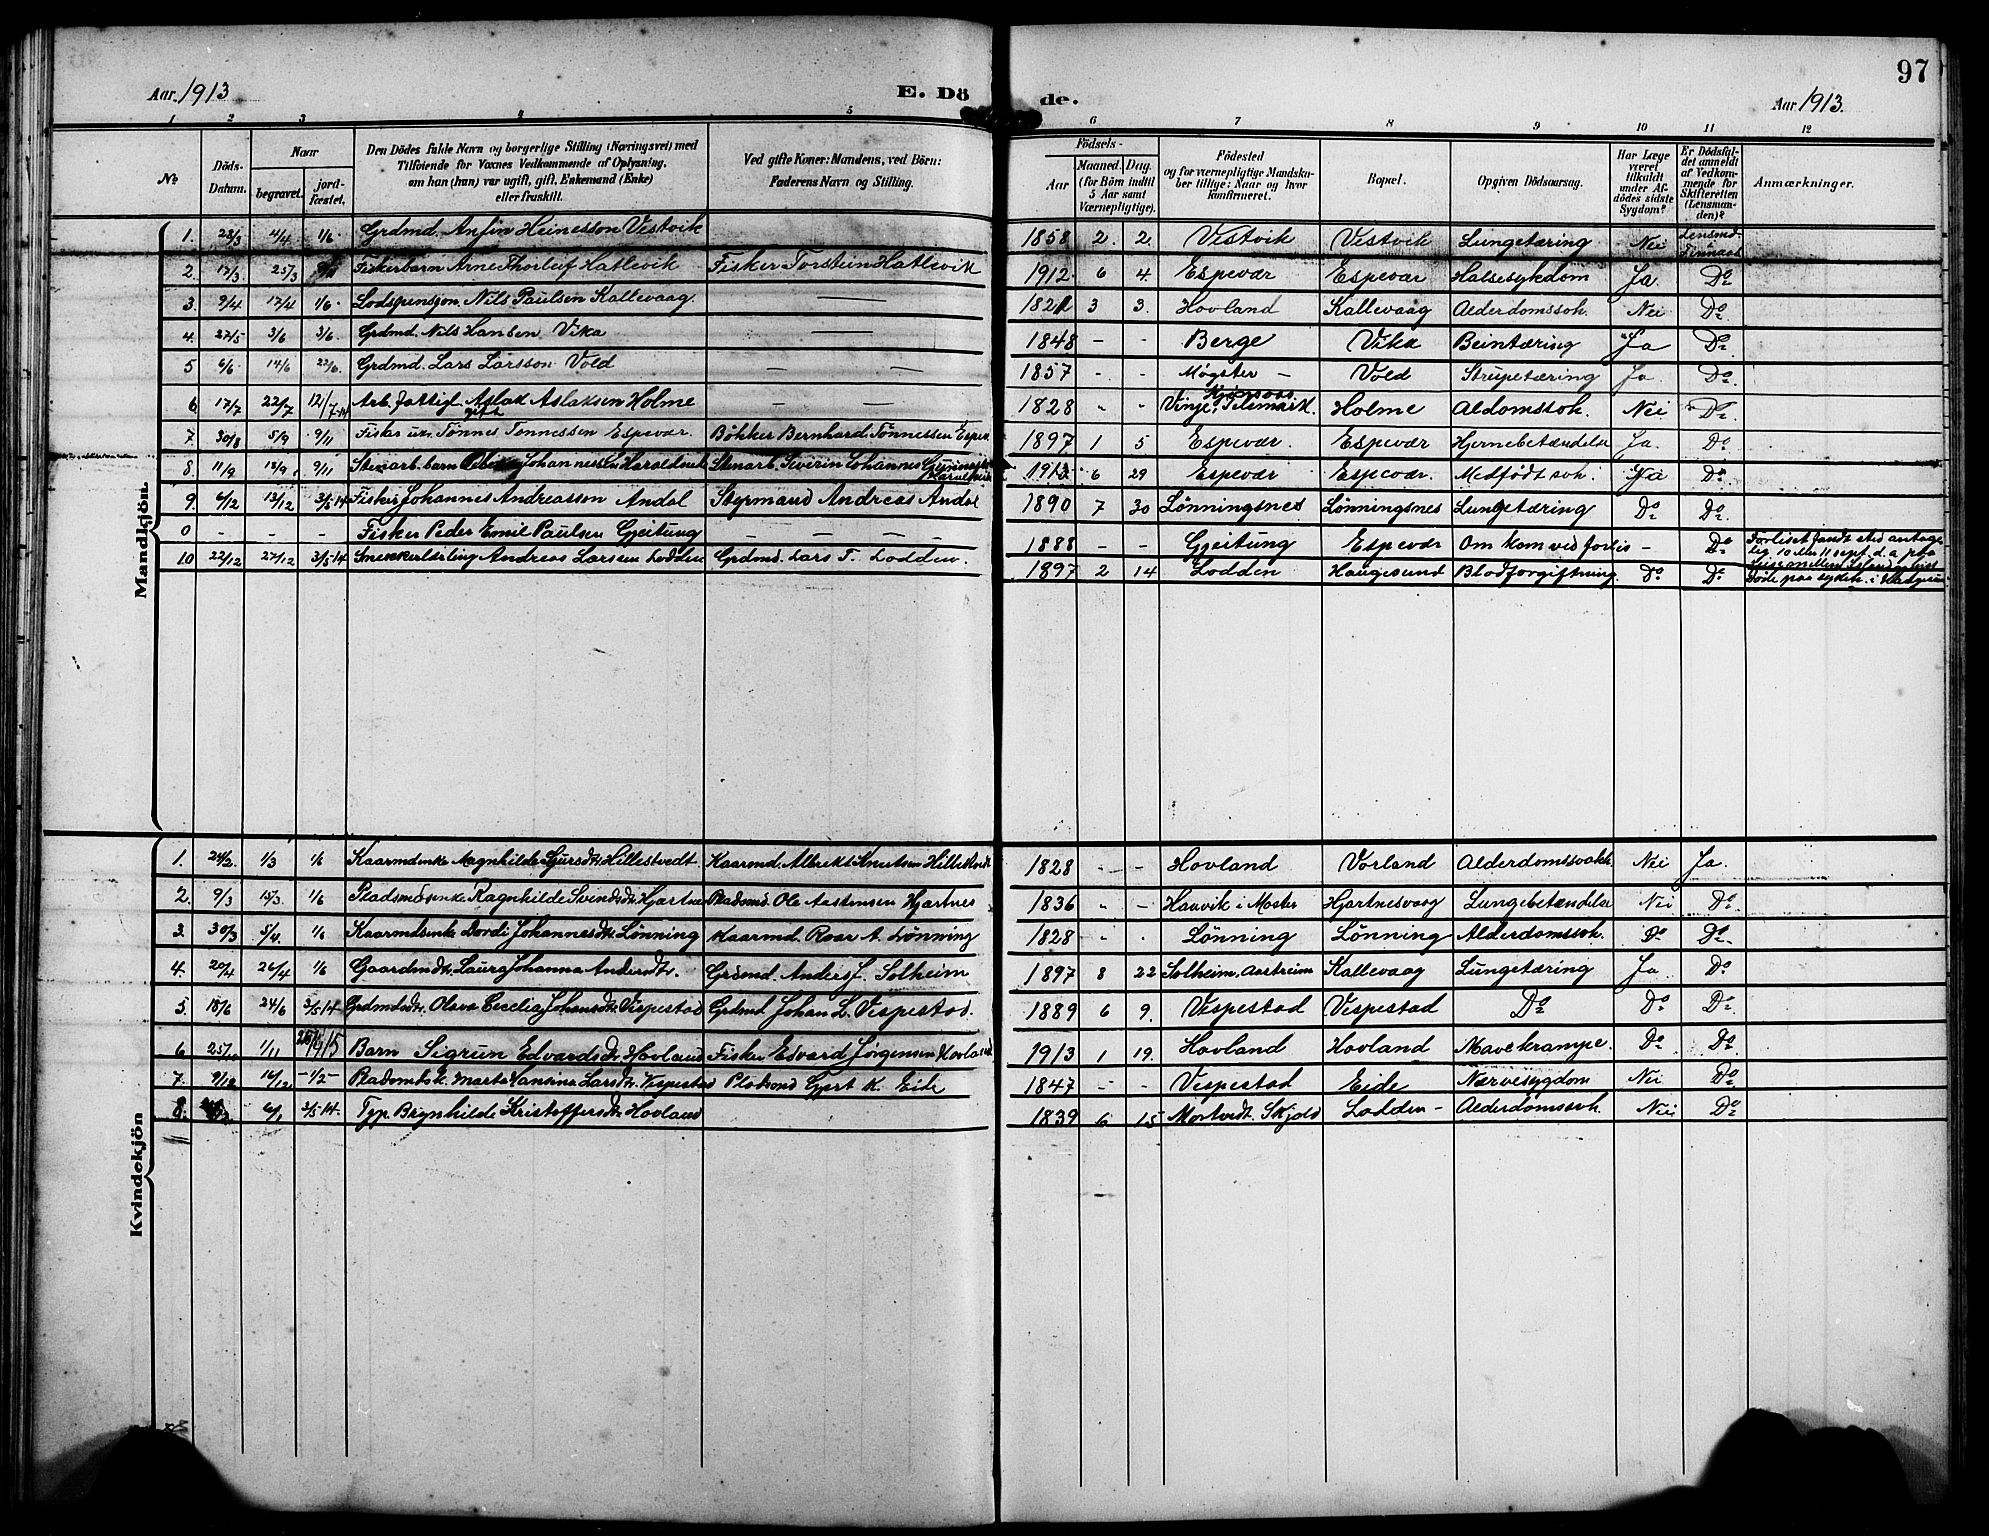 97
Aar. 1913
E. Dö
de.
Aar 1913.
1 2 3 4 5 6 7 8 9 10 11 12
No
Döds-Datum.
Naar
begravet.
jord-fæstet.
Den Dödes fulde Navn og borgerlige Stilling (Næringsvei) med
Tilföiende for Voxnes Vedkommende af Oplysning,
om han (hun) var ugift, gift, Enkemand (Enke)
eller fraskilt.
Ved gifte Koner: Mandens, ved Börn:
Faderens Navn og Stilling.
Födsels-
Aar
Maaned. Dag.
(for Börn indtil
5 Aar samt
Værnepligtige).
Födested
og for værnepligtige Mandska-
ber tillige: Naar og hvor
konfirmeret.
Bopæl.
Opgiven Dödsaarsag.
Har Læge
været
tilkaldt
under Af-
dödes sidste
Sygdom?
Er Dödsfal-
det anmeldt
af Vedkom-
mende for
Skifteretten
(Lensman-
den)?
Anmærkninger.
Mandkjön.
1. 28/3 4/4 1/6. Grdmd. Anfin Heinesson Vestvik 1858 2 2 Vestvik Vestvik Lungetæring Nei Lensmd. i Finnaas
2. 17/3 25/3 Fiskerbarn Arne Thorleif Hatlevik Fisker Torstein Hatlevik 1912 6 4. Espevær Espevær Halsesykdom Ja Do
3. 9/4 17/4 1/6. Nils Paulsen Kallevaag — — 1821 3 3. Hovland Kallevaag Alderdomssvk. Nei Do
4. 27/5 3/6 3/6. Grdmd. Nils Hansen Vika — — 1848 - - Berge Vika Beintæring Ja Do
5 6/6 14/6 22/6. Grdmd. Lars Larsson Vold — — 1857 - - Møgster — Vold Strupetæring Ja Do
6. 17/7 22/7 12/7-14 Arb. fattigl. gift Aslak Aslaksen Holme — — 1828 - - Vinje, Telemark. Holme Aldomssvk. Nei Do
7. 30/8 5/9 9/11 Fisker Tønnes Tønnessen Espevær. Bøkker Bernhard Tønnessen Espev. 1897 1 5 Espevær. Espevær Hjernebetændelse Ja. Do
8. 11/9 18/9 9/11 Stenarb. barn Johannes Haraldseid Stenarb. Severin Johannes 1913 6 29 Espevær Espevær. Medfødt svk. Nei Do
9. 6/12 13/12 3/5-14 Fisker Johannes Andreassen Andal Styrmand Andreas Andal 1890 7 30 Lønningsnes Lønningsnes Lungetæring Do Do
0 - - - Fisker Peder Emil Paulsen Gjeitung — — — 1888 - - Gjeitung Espevær Omkom ved forlis - Do Forliset fandt sted antage-
lig 10 eller 11 sept. d. a. paa
10 22/12 27/12 3/5-14 Snekkerlærling Andreas Larsen Lodden Grdmd. Lars T. Lodden. 1897 2 14 Lodden Haugesund Blodforgiftning. Do Do Døde paa sykeh. i Haugesund
Kvindekjön
1. 24/2. 1/3 1/6 Kaarmdenke Magnhilde Sjursdtr Hillestvedt Kaarmd. Albrekt Knutsen Hillestvedt 1828 - - Hovland Vorland Alderdomssvakh. Nei Ja.
2. 9/3 15/3. 1/6 Pladsmdsenke Ragnhilde Svendsdtr. Hjartnes Pladsmd. Ole Aastensen Hjartnes 1836 - - Haavik i Moster Hjartnesvaag Lungebetændelse Nei Do
3. 30/3 5/4. 1/6 Kaarmdsenke Dordi Johannesdtr. Lønning Kaarmd. Roar A. Lønning 1828 - - Lønning Lønning Alderdomssvk. Do Do
4. 20/4 26/4 1/6 Gaardmdtr. Laura Johanna Andersdtr. Grdmd. Anders J. Solheim 1897 8 22 Solheim, Kallevaag Lungetæring Ja. Do
5. 18/6 24/6 3/5-14 Grdmdsdtr. Olava Cecelia Johansdtr. Vespestad Grdmd Johan L. Vespestad. 1889 6 9. Vespestad Vespestad Do Do Do
6 1/11 Barn Sigrun Edvardsdtr Hovland Fisker Edvard Jørgensen Hovland 1913 1 19. Hovland Hovland Mavekrampe. Do Do
7. 9/12 16/12 Marta Hansina Larsdtr. Vespestad Gjert K. Eide 1847 - - Vespestad Eide Nærvesygdom Nei Do
8. 6/1 3/5-14. Brynhilde Kristoffersdtr Hovland 1839 6 15 Skjold Lodden - Alderdomssvk. Nei Do